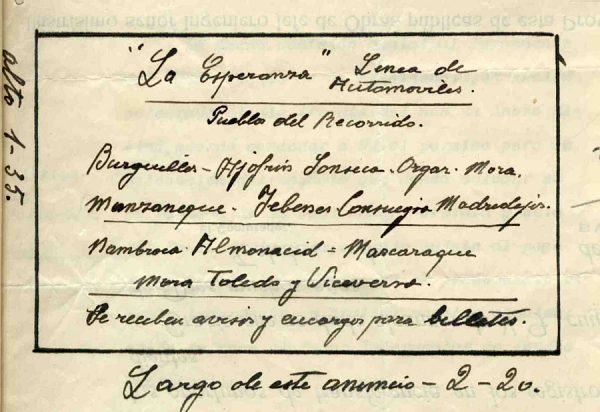 "La Esperanza" Linea de
Automoviles.
Pueblo del Recorrido.
Burguillos - Ajofrin Sonseca. Orgaz. Mora.
Manzaneque. Yebenes Consuegra Madridejos.
Nambroca. Almonacid = Mascaraque
Mora Toledo y Viceversa.
Se reciben avisos y encargos para billetes.
Largo de este anuncio - 2 - 20.
alto 1-35.